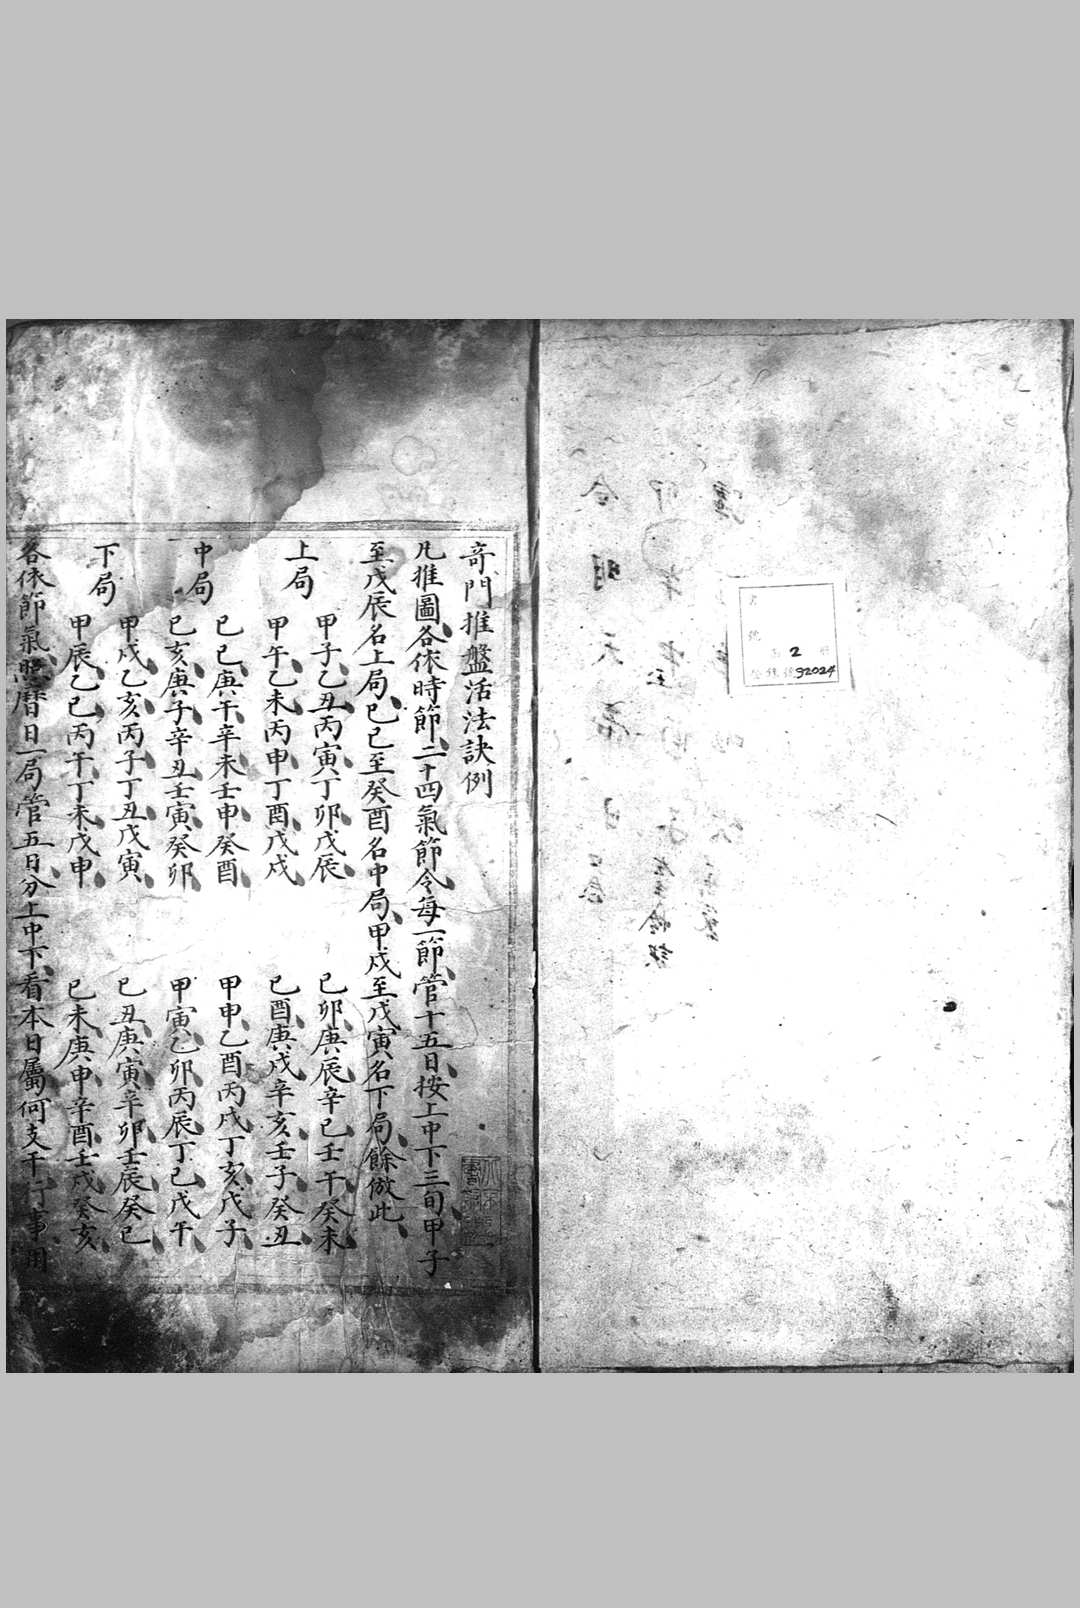 2
92024
奇門推盤活法訣例
凡推圖各依時節二十四氣節令每一節管十五日按上中下三旬甲子
至戊辰名上局己巳至癸酉名中局甲戌至戊寅名下局餘倣此
上局
甲子乙丑丙寅丁卯戊辰
己卯庚辰辛巳壬午癸未
甲午乙未丙申丁酉戊戌
己酉庚戌辛亥壬子癸丑
中局
己巳庚午辛未壬申癸酉
甲申乙酉丙戌丁亥戊子
己亥庚子辛丑壬寅癸卯
甲寅乙卯丙辰丁巳戊午
下局
甲戌乙亥丙子丁丑戊寅
己丑庚寅辛卯壬辰癸巳
甲辰乙巳丙午丁未戊申
己未庚申辛酉壬戌癸亥
各依節氣照曆日一局管五日分上中下看本日屬何支干行事用